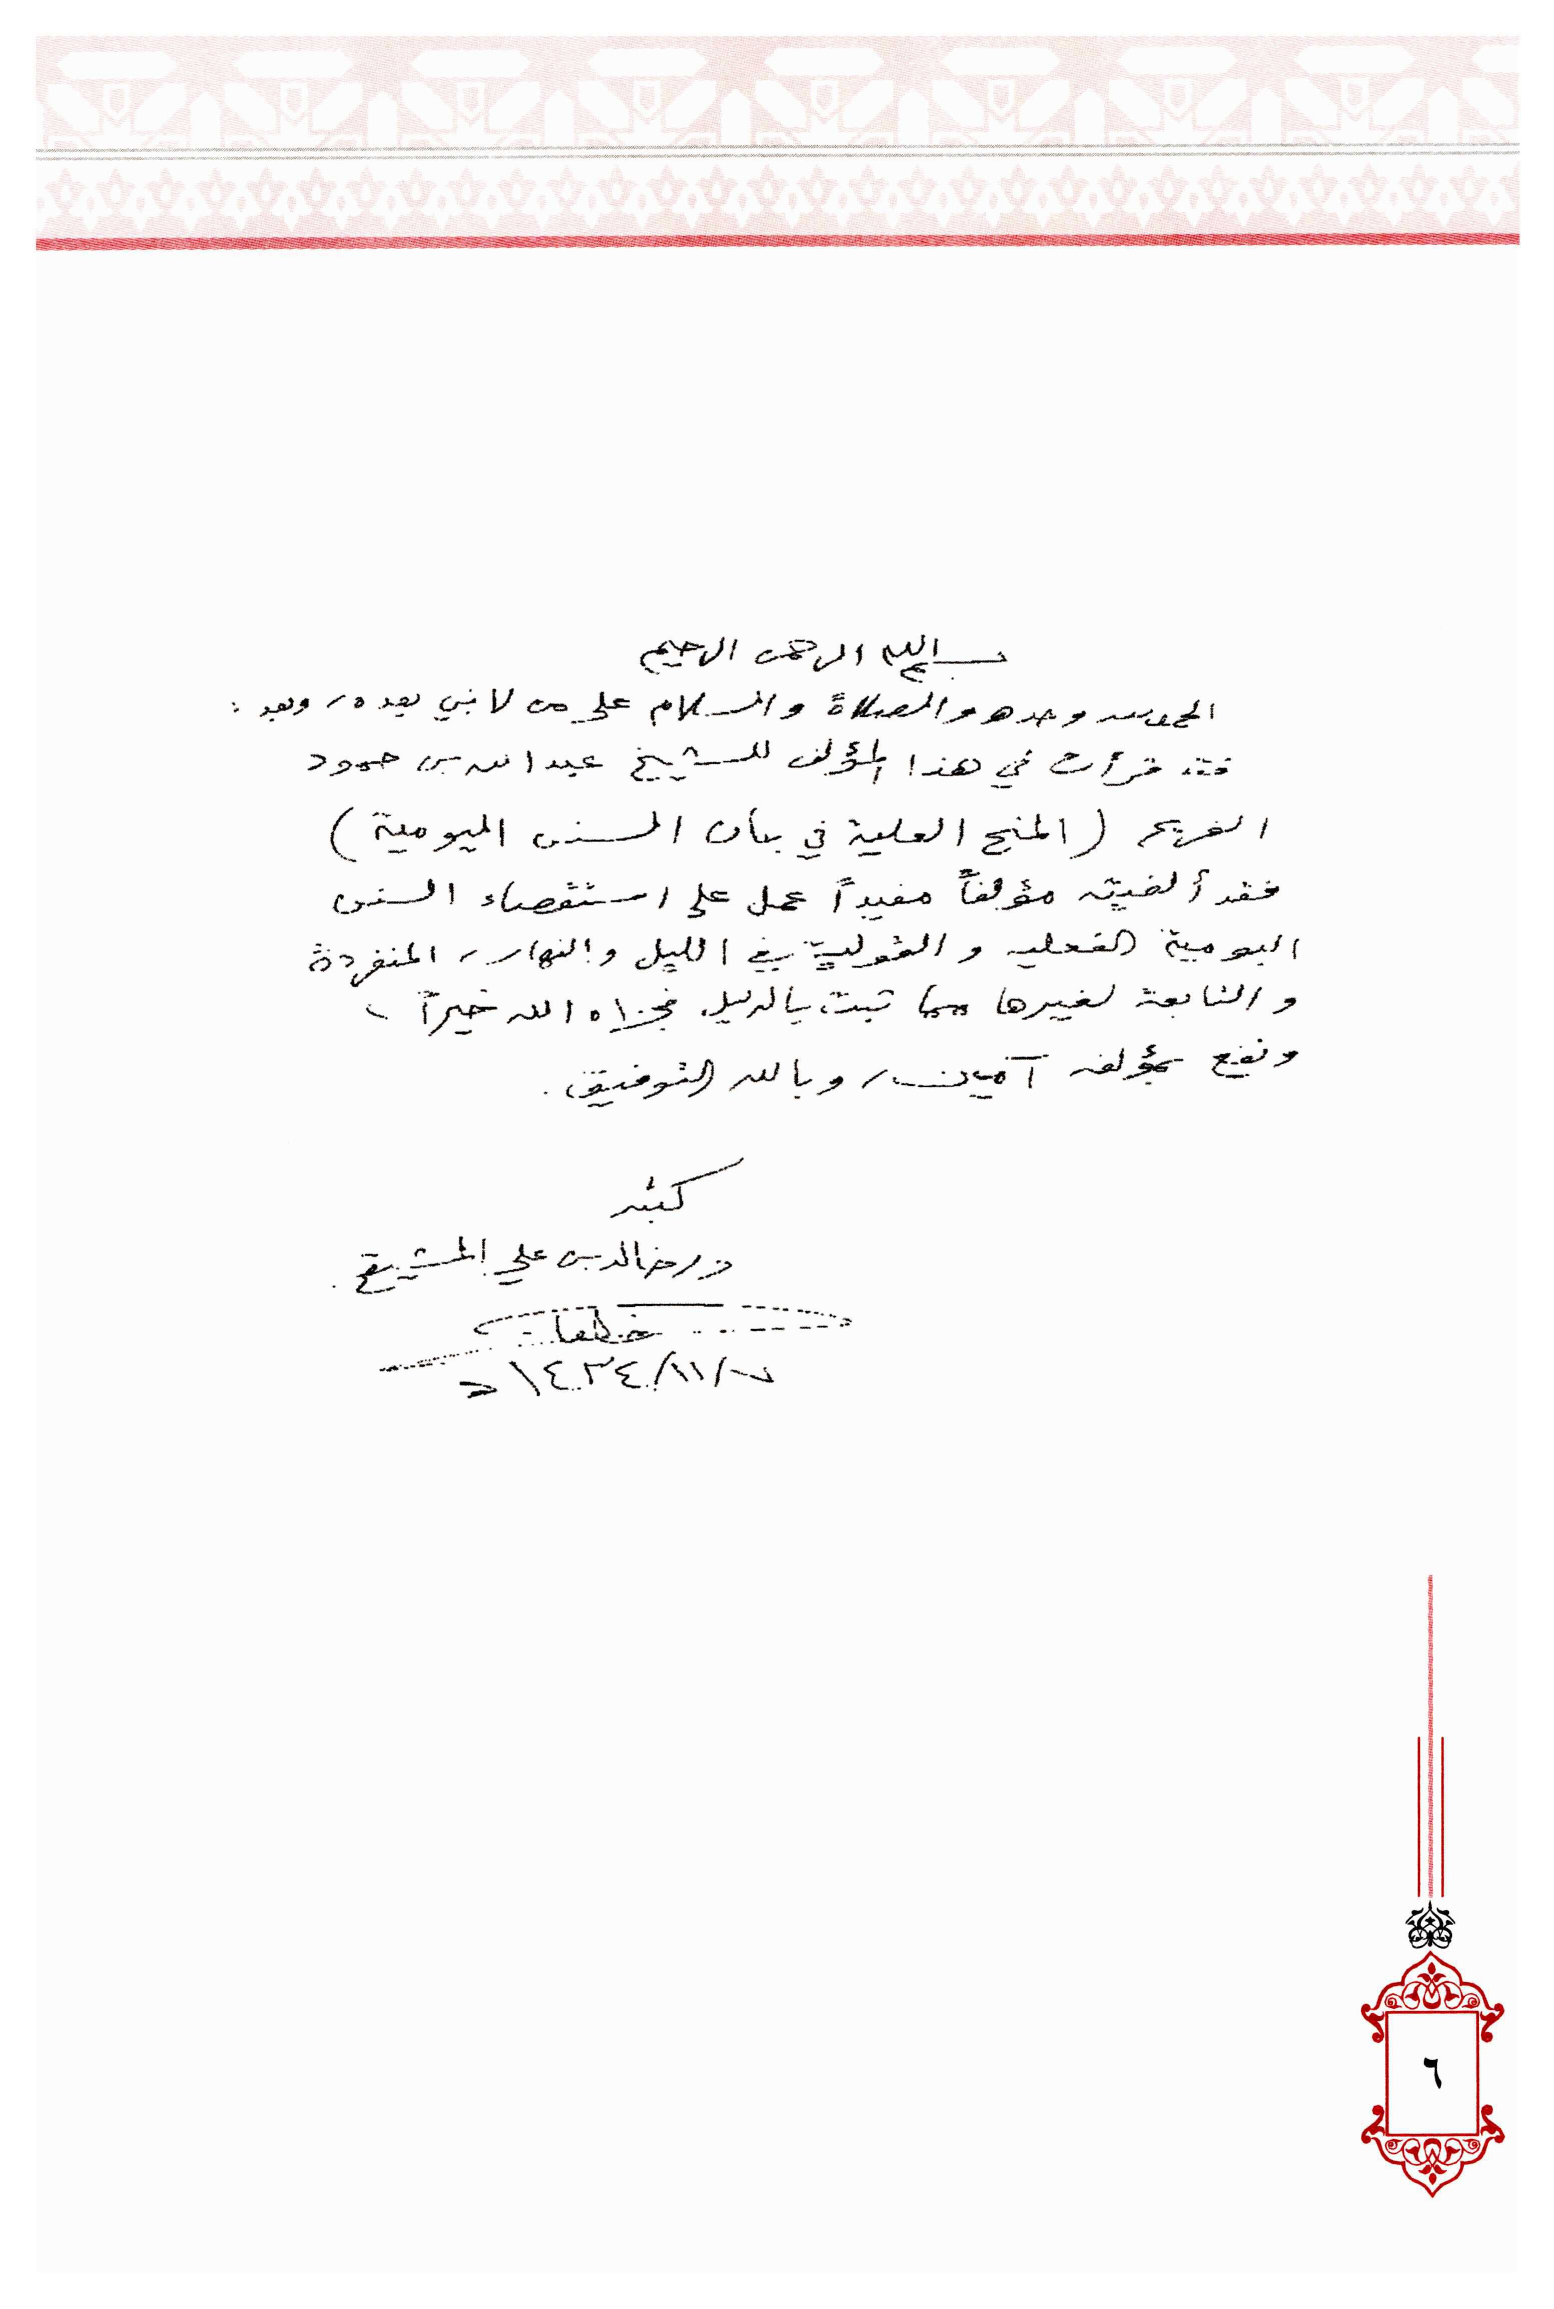 بسم الله الرحمن الرحيم
الحمد لله وحده والصلاة والسلام على من لا نبي بعده، وبعد:
فقد قرأت في هذا المؤلف للشيخ عبدالله بن حمود
الفريح (المنح العلية في بيان السنن اليومية)
فقد ألفيته مؤلفاً مفيداً عمل على استقصاء السنن
اليومية الفعليه والقولية في الليل والنهار، المنفردة
والتابعة لغيرها مما ثبت بالدليل. فجزاه الله خيراً،
ونفع بمؤلفه آمين، وبالله التوفيق.
كتبه
د. خالد بن علي المشيقح.
١٤٣٤/١١/٧هـ
٦